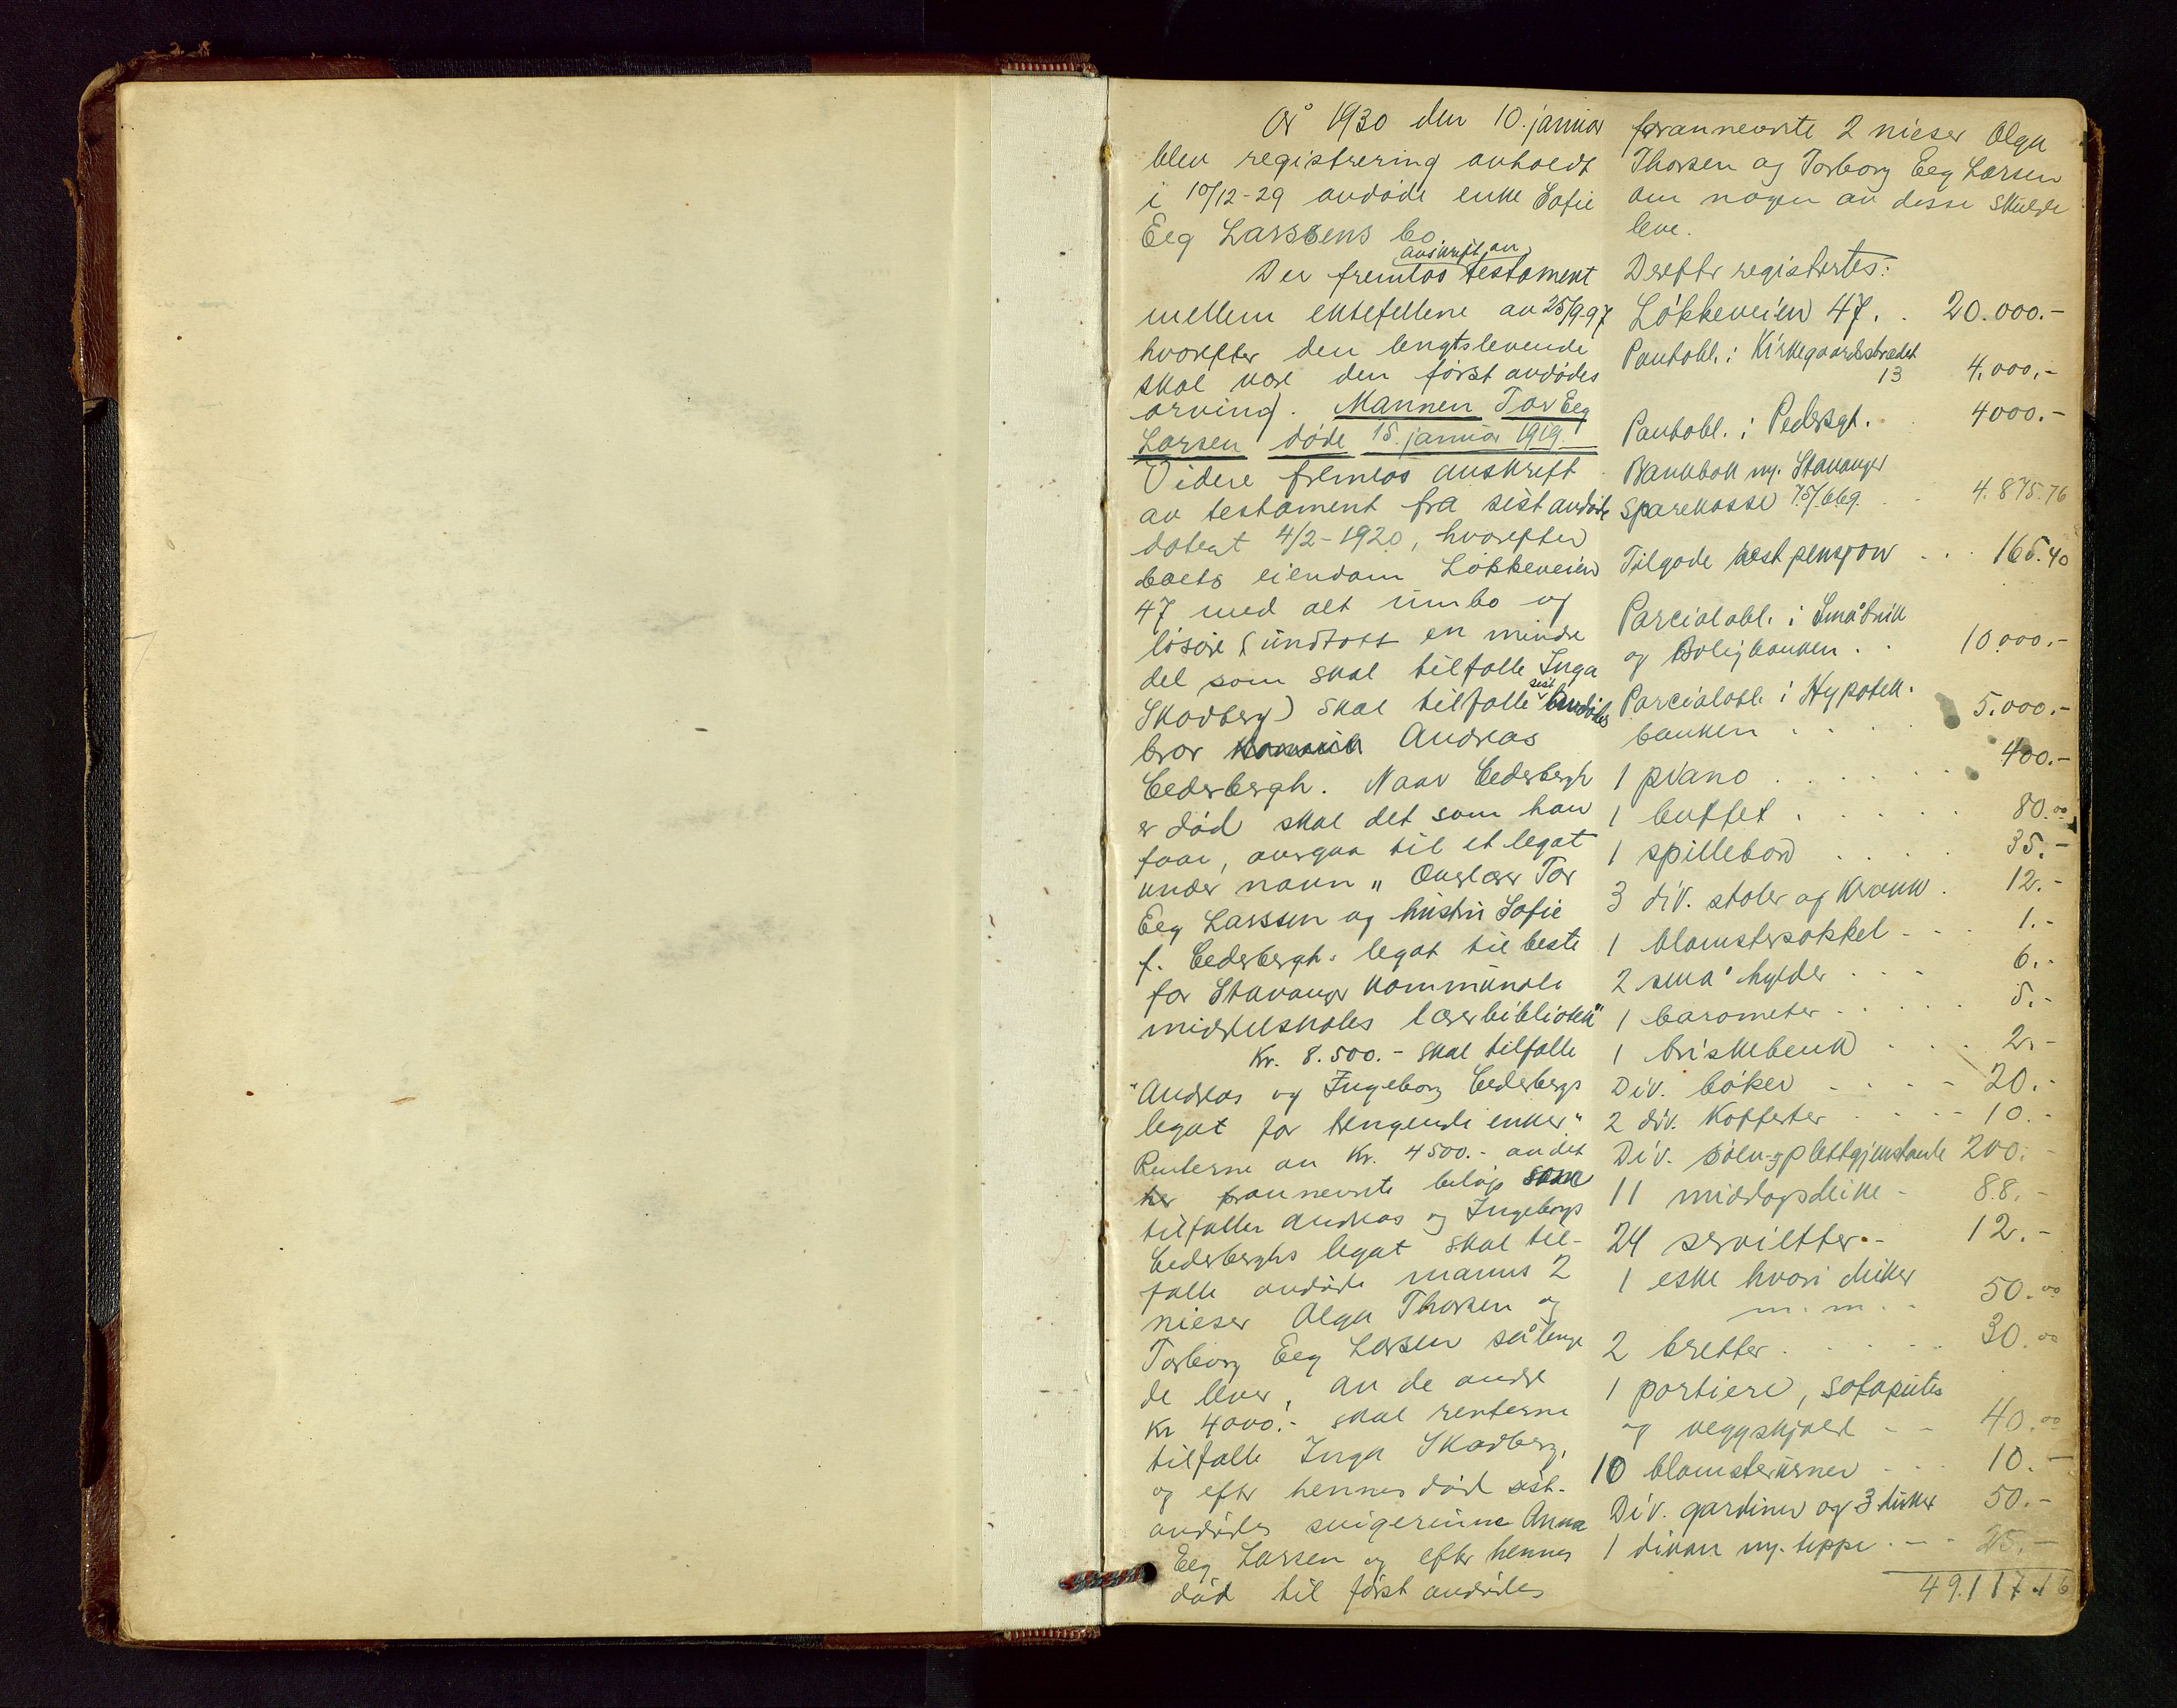 År 1930 den 10. januar
blev registrering avholdt
i 10/12-29 avdøde enke Sofie
Eeg Larssens bo.
Der fremlas avskrift av testament
mellem ektefellene av 25/9.97
hvorefter den lengstlevende
skal være den først avdødes
arving. Mannen Tor Eeg
Larsen døde 15. januar 1919.
Videre fremlas avskrift
av testament fra sist avdøde
datert 4/2-1920, hvorefter
boets eiendom Løkkeveien
47 med alt innbo og
løsøre (undtatt en mindre
del som skal tilfalle Inga
Skadberg) skal tilfalle sist avdødes
bror Andreas
Cederbergh. Naar Cederbergh
er død skal det som han
faar, overgaa til et legat
under navn "Overlærer Tor
Eeg Larssen og hustru Sofie
f. Cederbergh's legat til beste
for Stavanger kommunale
middelskoles lærerbibliotek"
Kr. 8.500.- skal tilfalle
"Andreas og Ingeborg Cederbergs
legat for trengende enker"
Renterne av kr. 4500.- av det
her forannevnte beløp som
tilfaller Andreas og Ingeborgs
Cederberghs legat skal til-
falle avdøde manns 2
nieser Olga Thorsen og
Torborg Eeg Larsen så lenge
de lever, av de andre
kr 4000.- skal renterne
tilfalle Inga Skadberg,
og efter hennes død sist-
avdødes svigerinne Anna
Eeg Larsen og efter hennes
død til først avdødes
forannevnte 2 nieser Olga
Thorsen og Torborg Eeg Larsen
om nogen av disse skulde
leve.
Derefter registrertes:
Løkkeveien 47. . 20.000.-
Pantobl. i Kirkegaardsstrædet
13 4.000,-
Pantobl. i Pedersgt. . 4000.-
Bankbok nr. Stavanger
Sparekasse 75/669. . 4.875.76
Tilgode hest pensjon . . . 165.40
Parcialobl. i Småbruk
og Boligbanken . . 10.000.-
Parcialobl. i Hypotek-
banken . . . 5.000.-
1 piano . . . . . . 400.-
1 buffet . . . . . 80.00
1 spillebord . . . . . 35.-
3 div. stoler og krakk . 12.-
1 blomstersokkel . . . 1.-
2 små hylder . . . 6.-
1 barometer . . . . . 5.-
1 briskebenk . . . . 2.-
Div. bøker . . . . 20.-
2 div. Kofferter . . . . 10.-
Div. sølv og plettgjenstande 200.-
11 middagsduke - 88.-
24 servietter.- 12.-
1 eske hvori duker
m. m. . 50.00
2 bretter . . . . . 30.00
1 portiere, sofaputer
og veggskjold - - 40.00
10 blomsterurner . . . 10.-
Div. gardiner og 3 duker 50.-
1 divan m. teppe . - - 25.-
49.117.16